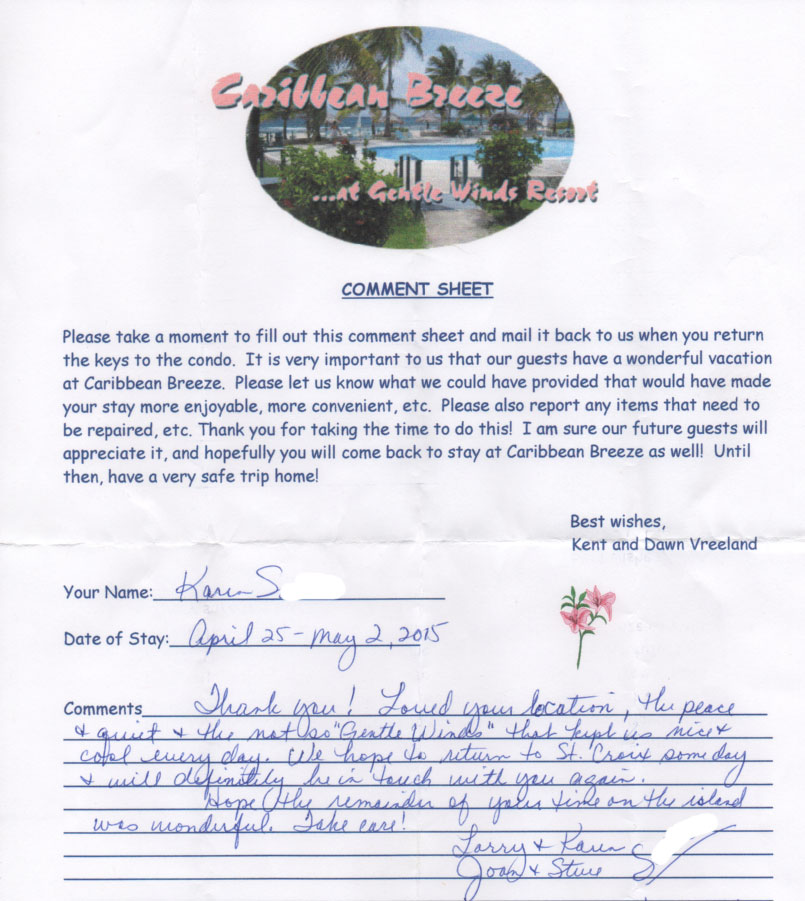 Caribbean Breeze
...at Gentle Winds Resort
COMMENT SHEET
Please take a moment to fill out this comment sheet and mail it back to us when you return
the keys to the condo. It is very important to us that our guests have a wonderful vacation
at Caribbean Breeze. Please let us know what we could have provided that would have made
your stay more enjoyable, more convenient, etc. Please also report any items that need to
be repaired, etc. Thank you for taking the time to do this! I am sure our future guests will
appreciate it, and hopefully you will come back to stay at Caribbean Breeze as well! Until
then, have a very safe trip home!
Best wishes,
Kent and Dawn Vreeland
Your Name: Karen S
Date of Stay: April 25 - May 2, 2015
Comments Thank you! Loved your location, the peace
& quiet & the not so "Gentle Winds" that kept us nice &
cool every day. We hope to return to St. Croix someday
& will definitely be in touch with you again.
Hope the remainder of your time on the island
was wonderful. Take care!
Larry & Karen
Joan & Steve S